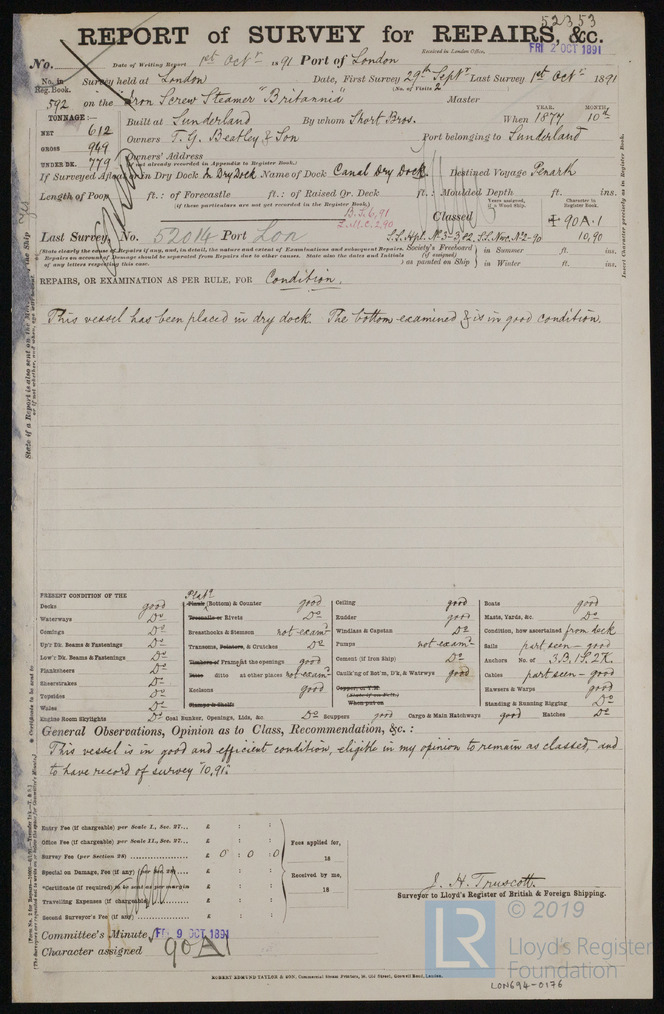 52353
REPORT of SURVEY for REPAIRS, &c.
Received in London Office, FRI 2 OCT 1891
No. Date of Writing Report 1st Octr 1891 Port of London
No. in Reg. Book. Survey held at London Date, First Survey 29th Septr Last Survey 1st Octr 1891
(No. of Visits 2)
592 on the Iron Screw Steamer "Britannia" Master
TONNAGE:—
NET 612
GROSS 949
UNDER DK. 779
Built at Sunderland By whom Short Bros. When 1877 10th
YEAR. MONTH.
Owners T. G. Beatley & Son Port belonging to Sunderland
Owners' Address
(if not already recorded in Appendix to Register Book.)
If Surveyed Afloat or in Dry Dock In Dry Dock Name of Dock Canal Dry Dock Destined Voyage Penarth
Length of Poop ft.: of Forecastle ft.: of Raised Qr. Deck ft.: Moulded Depth ft. ins.
(if these particulars are not yet recorded in the Register Book.)
B.S. 6,91
L.M.C. 2,90
Classed
Years assigned, if a Wood Ship.
Character in Register Book.
90 A.1
10,90
Last Survey, No. 52014 Port Lon
S.S. Hpl. No.3-3,82 S.S. Nwc. No.2-90
Society's Freeboard (if assigned) as painted on Ship in Summer ft. ins.
in Winter ft. ins.
REPAIRS, OR EXAMINATION AS PER RULE, FOR Condition.
This vessel has been placed in dry dock. The bottom examined & is in good condition.
PRESENT CONDITION OF THE
Decks good
Waterways Do
Comings Do
Up'r Dk. Beams & Fastenings Do
Low'r Dk. Beams & Fastenings Do
Planksheers Do
Sheerstrakes Do
Topsides Do
Wales Do
Engine Room Skylights Do
Platg
Plank (Bottom) & Counter good
Treenails or Rivets Do
Breasthooks & Stemson not examd
Transoms, Pointers, & Crutches Do
Timbers of Frame at the openings good
Ditto ditto at other places not examd
Keelsons good
Clamps & Shelfs
Coal Bunker, Openings, Lids, &c. Do
Ceiling good
Rudder good
Windlass & Capstan Do
Pumps not examd
Cement (if Iron Ship) Do
Caulk'ng of Bot'm, D'k, & Watrwys good
Scuppers good
Cargo & Main Hatchways good
Boats good
Masts, Yards, &c. Do
Condition, how ascertained from deck
Sails part seen - good
Anchors No. of 3.B. 1S. 2K.
Cables part seen - good
Hawsers & Warps good
Standing & Running Rigging Do
Hatches Do
General Observations, Opinion as to Class, Recommendation, &c.:
This vessel is in good and efficient condition, eligible in my opinion to remain as classed, and
to have record of survey "10,91."
Entry Fee (if chargeable) per Scale I., Sec. 27... £ : :
Office Fee (if chargeable) per Scale II., Sec. 27... £ : :
Survey Fee (per Section 28) £ 0 : 0 : 0
Special on Damage, Fee (if any) (per Sec. 28) £ : :
*Certificate (if required) to be sent as per margin £ : :
Travelling Expenses (if chargeable) £ : :
Second Surveyor's Fee (if any) £ : :
Fees applied for,
18
Received by me,
18
J. H. Truscott.
Surveyor to Lloyd's Register of British & Foreign Shipping.
Committee's Minute FRI 9 OCT 1891
Character assigned 90A1
© 2019
LR
Lloyd's Register
Foundation
ROBERT EDMUND TAYLOR & SON, Commercial Steam Printers, 19, Old Street, Goswell Road, London.
LON694-0176